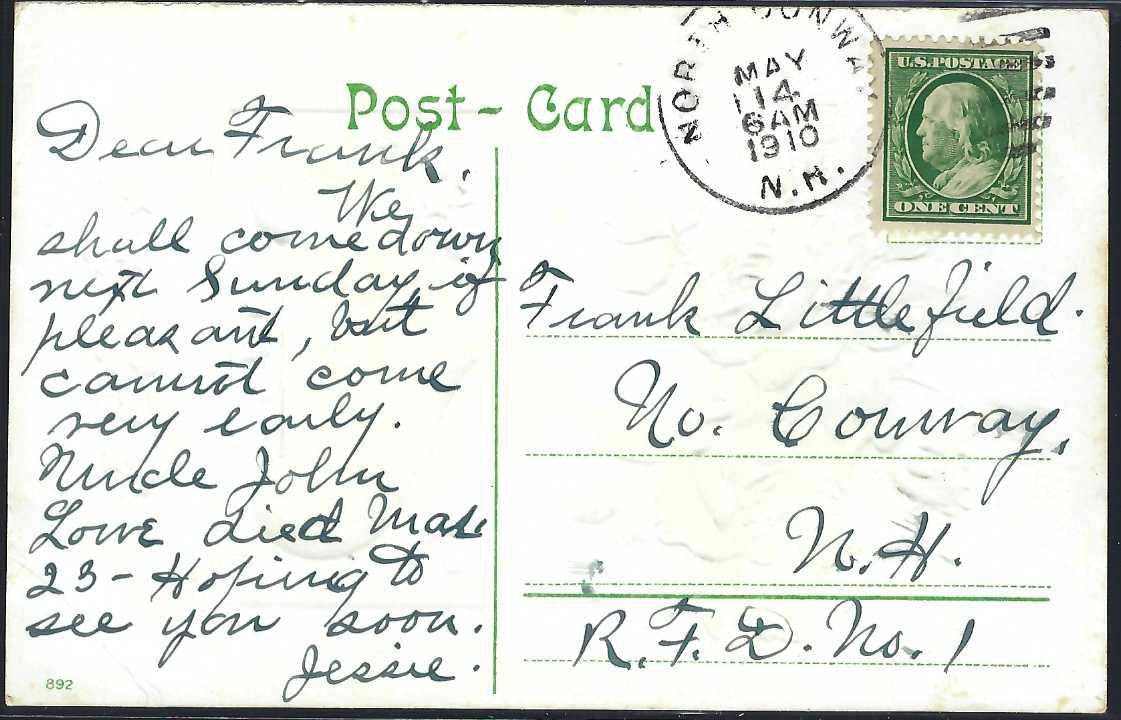 Post - Card
NORTH CONWAY
MAY
14
6 AM
1910
N.H.
U.S. POSTAGE
ONE CENT
Dear Frank.
We
shall come down
next Sunday, if
pleasant, but
cannot come
very early.
Uncle John
Lowe died Mar.
23 - Hoping to
see you soon.
Jessie.
Frank Littlefield.
No. Conway,
N.H.
R.F.D. No. 1
892